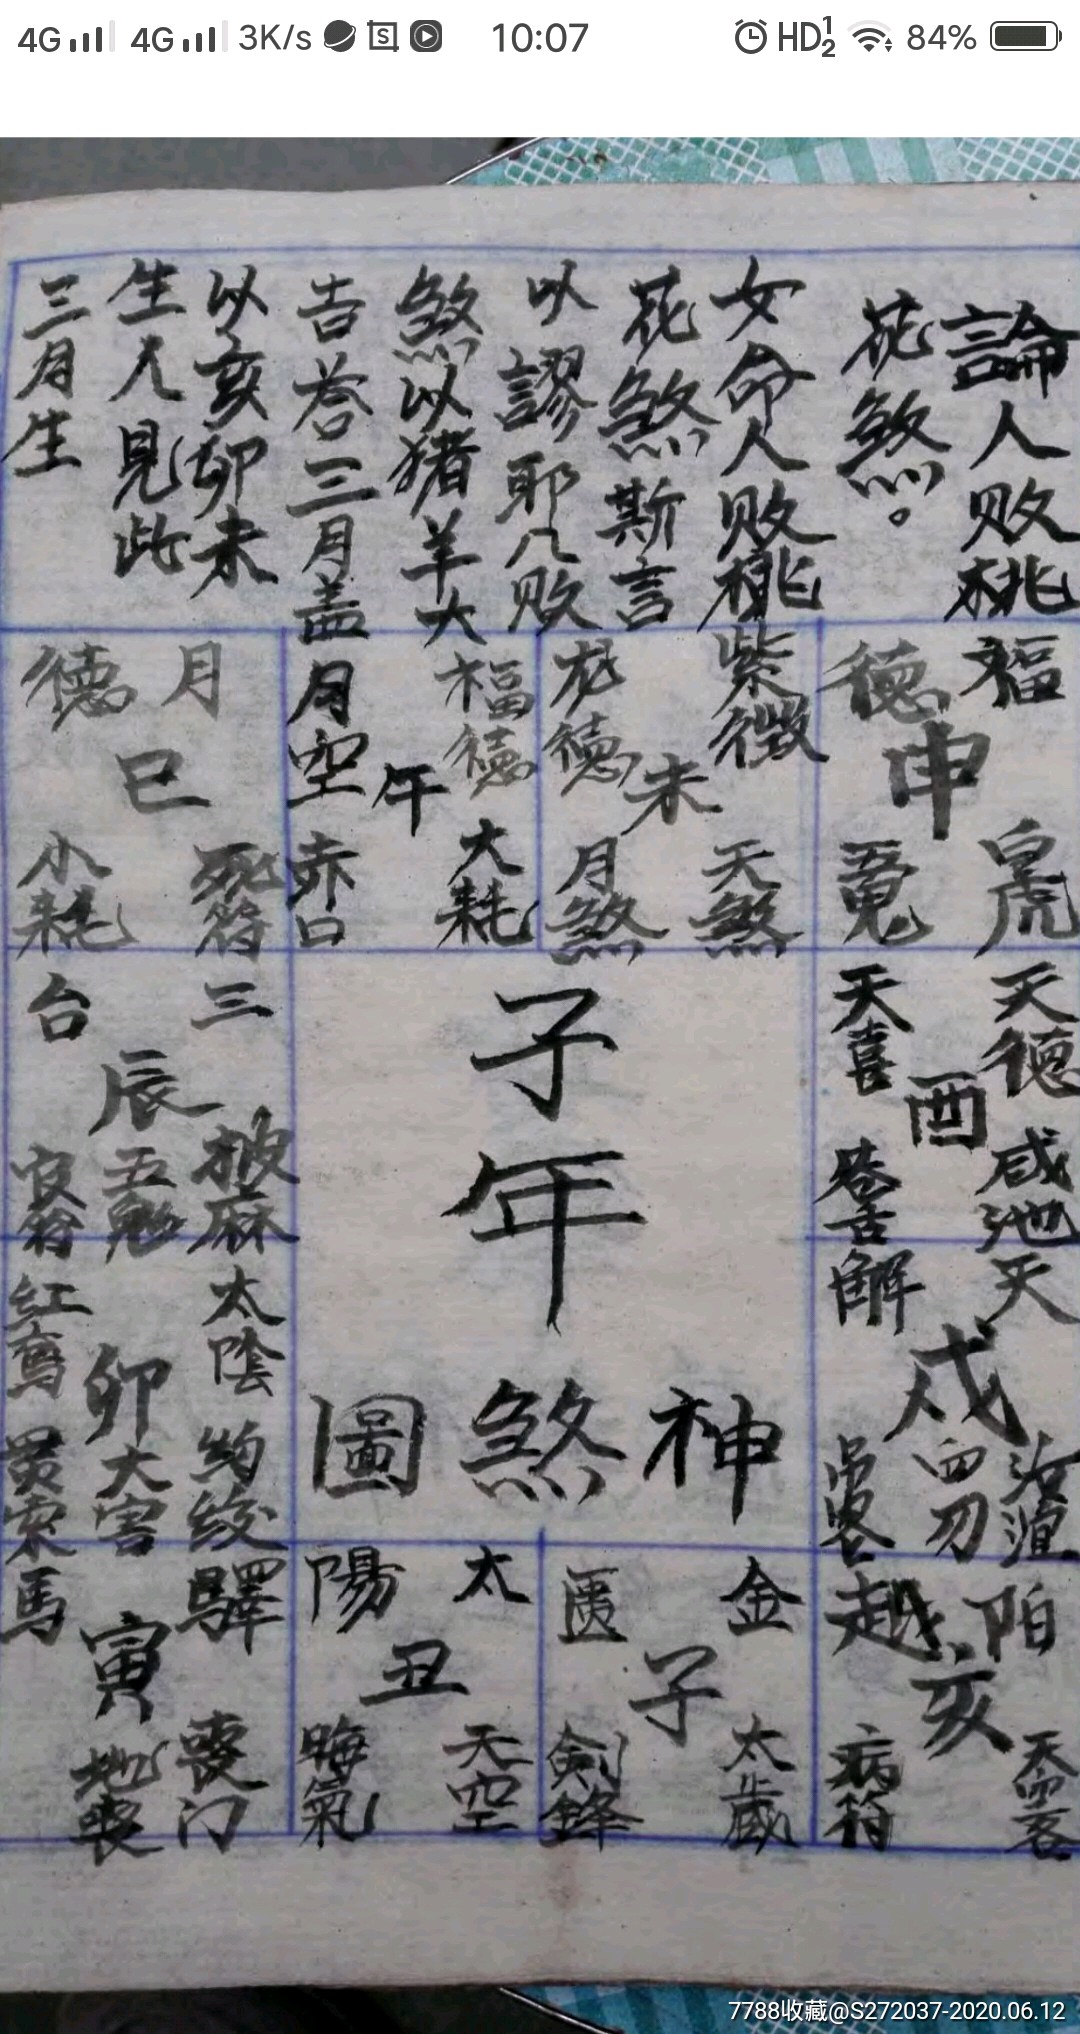 4G 4G 3K/s 10:07 HD 1 2 84%
論人败桃
花煞。
女命人败桃
花煞斯言
以謬耶凡败
煞以猪羊犬
吉荅三月盖
以亥卯未
生人見此
三月生
福德
申
白虎
紫微
龙德
未
天煞
月煞
福德
月空
午
大耗
赤口
月德
巳
死符
小耗
天德
天喜
酉
咸池
三台
辰
披麻
五鬼
官符
子年
神煞圖
天解
戌
血刃
吊客
太陰
红鸾
卯
絞
大害
索
驛馬
寅
喪门
地喪
太陽
丑
天空
晦氣
金匱
子
太歲
剣鋒
陌越
亥
病符
7788收藏@S272037-2020.06.12